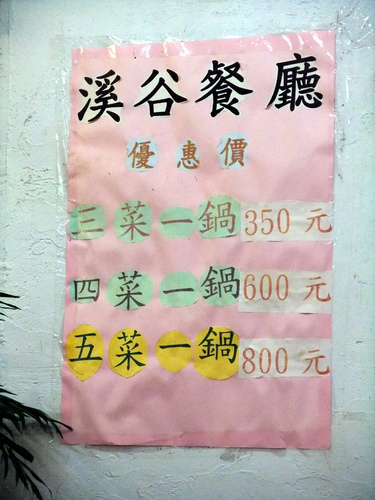 溪谷餐廳
優惠價
三菜一鍋 350 元
四菜一鍋 600 元
五菜一鍋 800 元